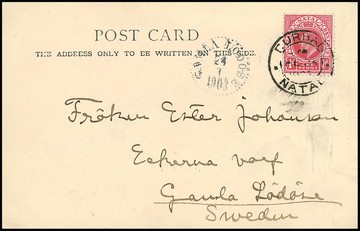 POST CARD
THE ADDRESS ONLY TO BE WRITTEN ON THIS SIDE.
GAMLA LÖDÖSE
24
1903
NATAL
DURBAN
NATAL
Fröken Ester Johanson
Eckerna
Gamla Lödöse
Sweden